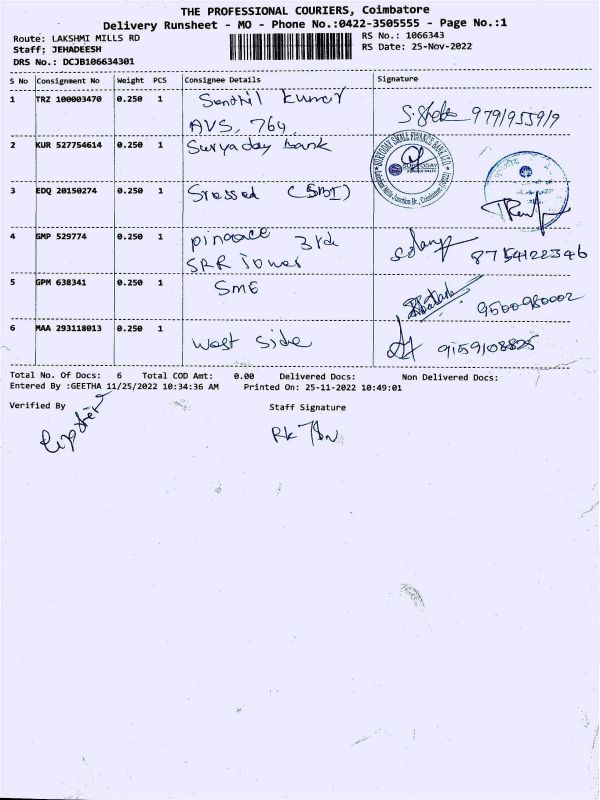 THE PROFESSIONAL COURIERS, Coimbatore
Delivery Runsheet - MO - Phone No.:0422-3505555 - Page No.:1
Route: LAKSHMI MILLS RD
RS No.: 1066343
Staff: JEHADEESH
RS Date: 25-Nov-2022
DRS No.: DCJB106634301
S No Consignment No Weight PCS Consignee Details Signature
1 TRZ 100003470 0.250 1 Senthil Kumar
AVS, 764,
2 KUR 527754614 0.250 1 Suryaday Bank
3 EDQ 20150274 0.250 1 Sressed (SBI)
4 GMP 529774 0.250 1 pinnacle 3rd
SRR Tower 8754122346
5 GPM 638341 0.250 1 SME 9500980002
6 MAA 293118013 0.250 1 West Side 9159108825
Total No. Of Docs: 6 Total COD Amt: 0.00 Delivered Docs: Non Delivered Docs:
Entered By :GEETHA 11/25/2022 10:34:36 AM Printed On: 25-11-2022 10:49:01
Verified By Staff Signature